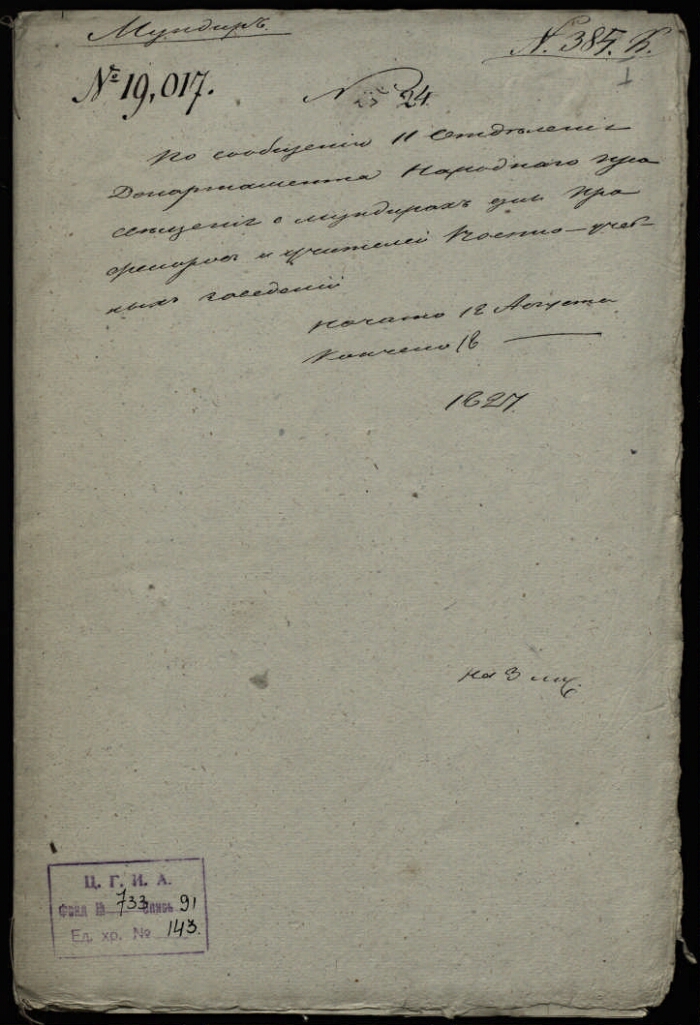 Мундиръ.
N. 385. К.
1
№ 19,017.
N 24
По сообщенію II Отдѣленія
Департамента Народнаго про
свѣщенія о мундирахъ для про
фессоровъ и учителей Военно-учеб-
ныхъ заведеній
Начато 12 Августа
Кончено 18 —
1827.
на 3 лис.
Ц. Г. И. А.
Фонд № 733 опись 91
Ед. хр. № 143.